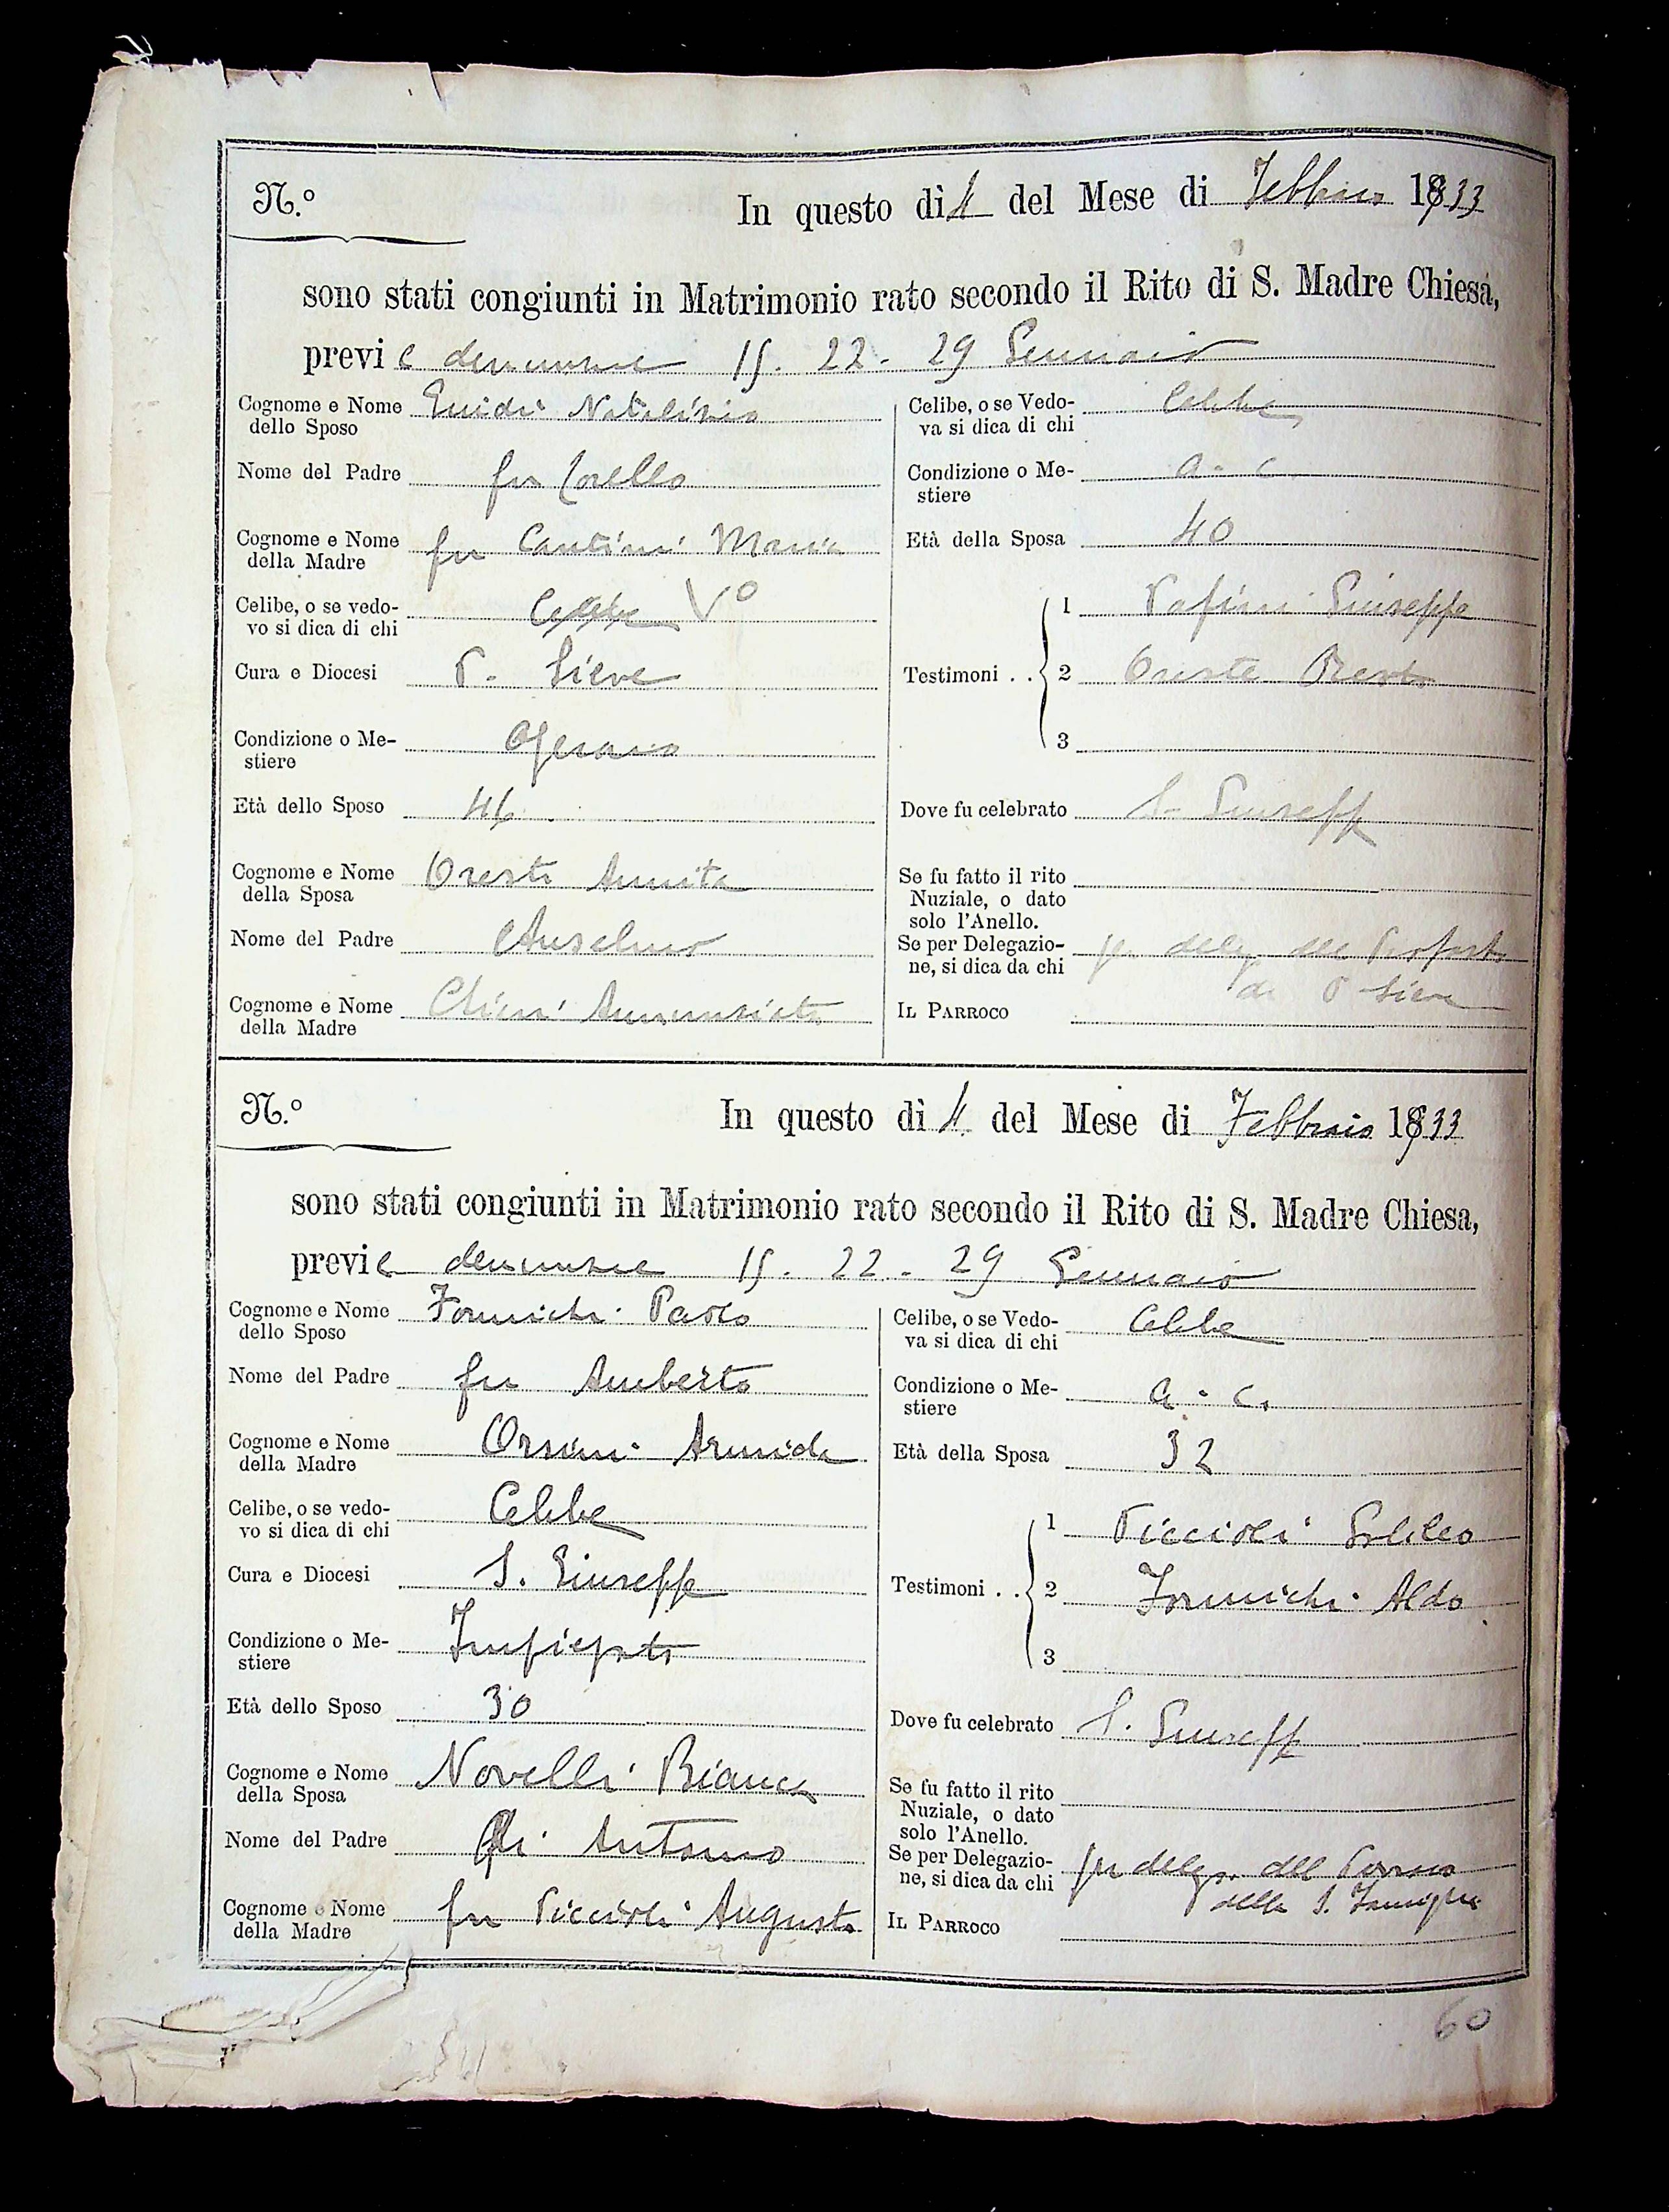 N.º
In questo dì 4 del Mese di Febbraio 1933
sono stati congiunti in Matrimonio rato secondo il Rito di S. Madre Chiesa,
previe denunzie 15. 22. 29 Gennaio
Cognome e Nome dello Sposo Guidi Natalizio
Nome del Padre fu Corello
Cognome e Nome della Madre fu Cantini Maria
Celibe, o se vedovo si dica di chi Celibe Vº
Cura e Diocesi P. Sieve
Condizione o Mestiere Operaio
Età dello Sposo 44
Cognome e Nome della Sposa Oresti Annita
Nome del Padre Anselmo
Cognome e Nome della Madre Chini Annunziata
Celibe, o se Vedova si dica di chi Celibe
Condizione o Mestiere a. c.
Età della Sposa 40
Testimoni . .
1 Pafini Giuseppe
2 Oreste
3
Dove fu celebrato S. Giusepp
Se fu fatto il rito Nuziale, o dato solo l'Anello.
Se per Delegazione, si dica da chi per deleg. del Proposto
di P Sieve
IL PARROCO
N.º
In questo dì 4 del Mese di Febbraio 1933
sono stati congiunti in Matrimonio rato secondo il Rito di S. Madre Chiesa,
previe denunzie 15. 22. 29 Gennaio
Cognome e Nome dello Sposo Formichi Paolo
Nome del Padre fu Umberto
Cognome e Nome della Madre Orsini Armida
Celibe, o se vedovo si dica di chi Celibe
Cura e Diocesi S. Giuseppe
Condizione o Mestiere Impiegato
Età dello Sposo 30
Cognome e Nome della Sposa Novelli Bianca
Nome del Padre di Antonio
Cognome e Nome della Madre fu Piccioli Augusta
Celibe, o se Vedova si dica di chi Celibe
Condizione o Mestiere a. c.
Età della Sposa 32
Testimoni . .
1 Piccioli Galileo
2 Formichi Aldo
3
Dove fu celebrato S. Giusepp
Se fu fatto il rito Nuziale, o dato solo l'Anello.
Se per Delegazione, si dica da chi per deleg. del Parroco
della S. Famiglia
IL PARROCO
60